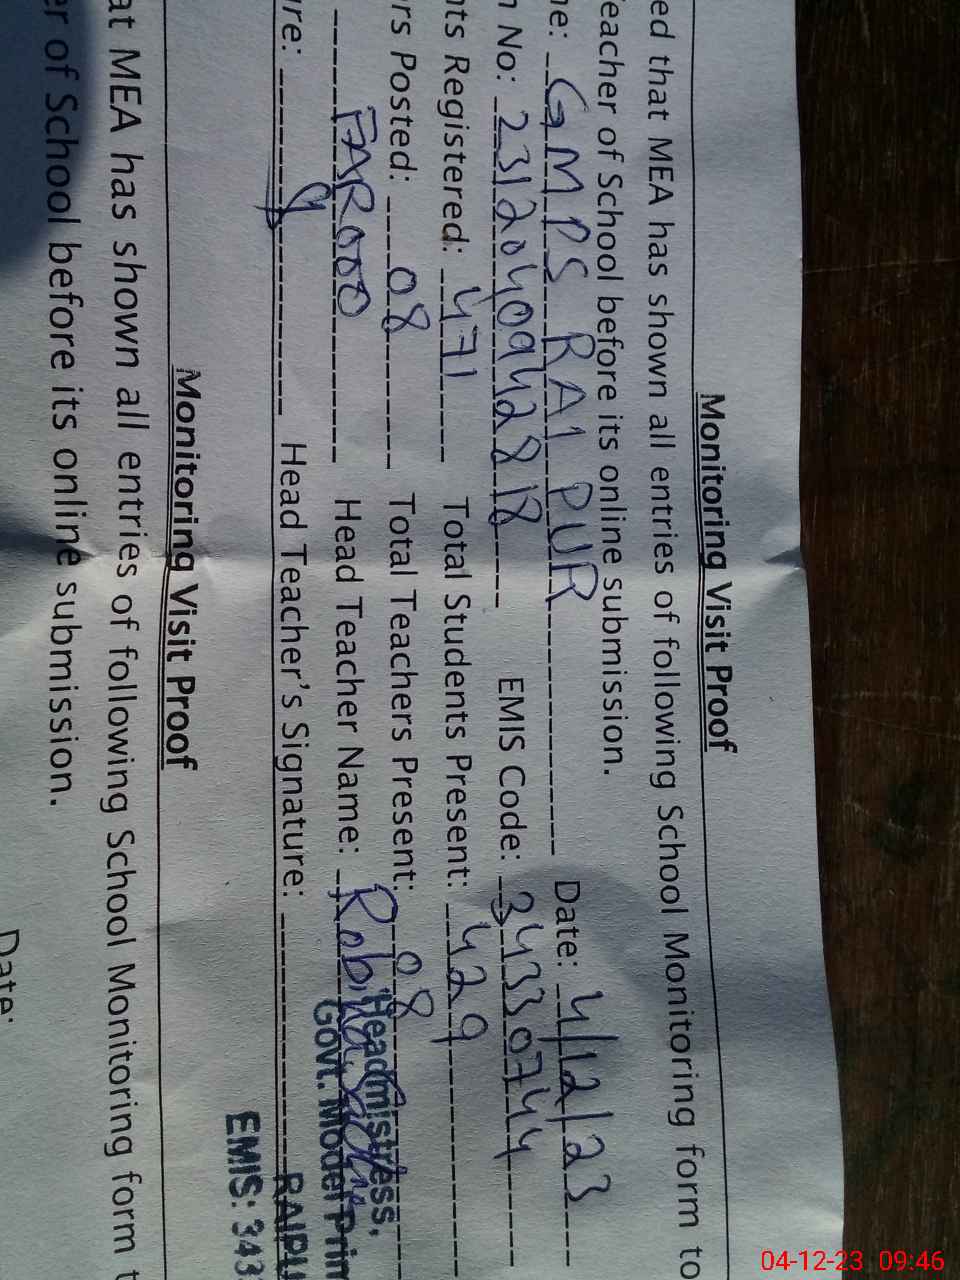 Monitoring Visit Proof
ed that MEA has shown all entries of following School Monitoring form to
eacher of School before its online submission.
ne: GMPS RAIPUR Date: 4/12/23
n No: EMIS Code: 34330744
nts Registered: 471 Total Students Present: 429
rs Posted: 08 Total Teachers Present: 08
FAROOQ Head Teacher Name: Robina
Headmistress,
Govt. Model Prim
ure: Head Teacher's Signature:
RAIPU
EMIS: 343
Monitoring Visit Proof
at MEA has shown all entries of following School Monitoring form t
er of School before its online submission.
Date:
04-12-23 09:46